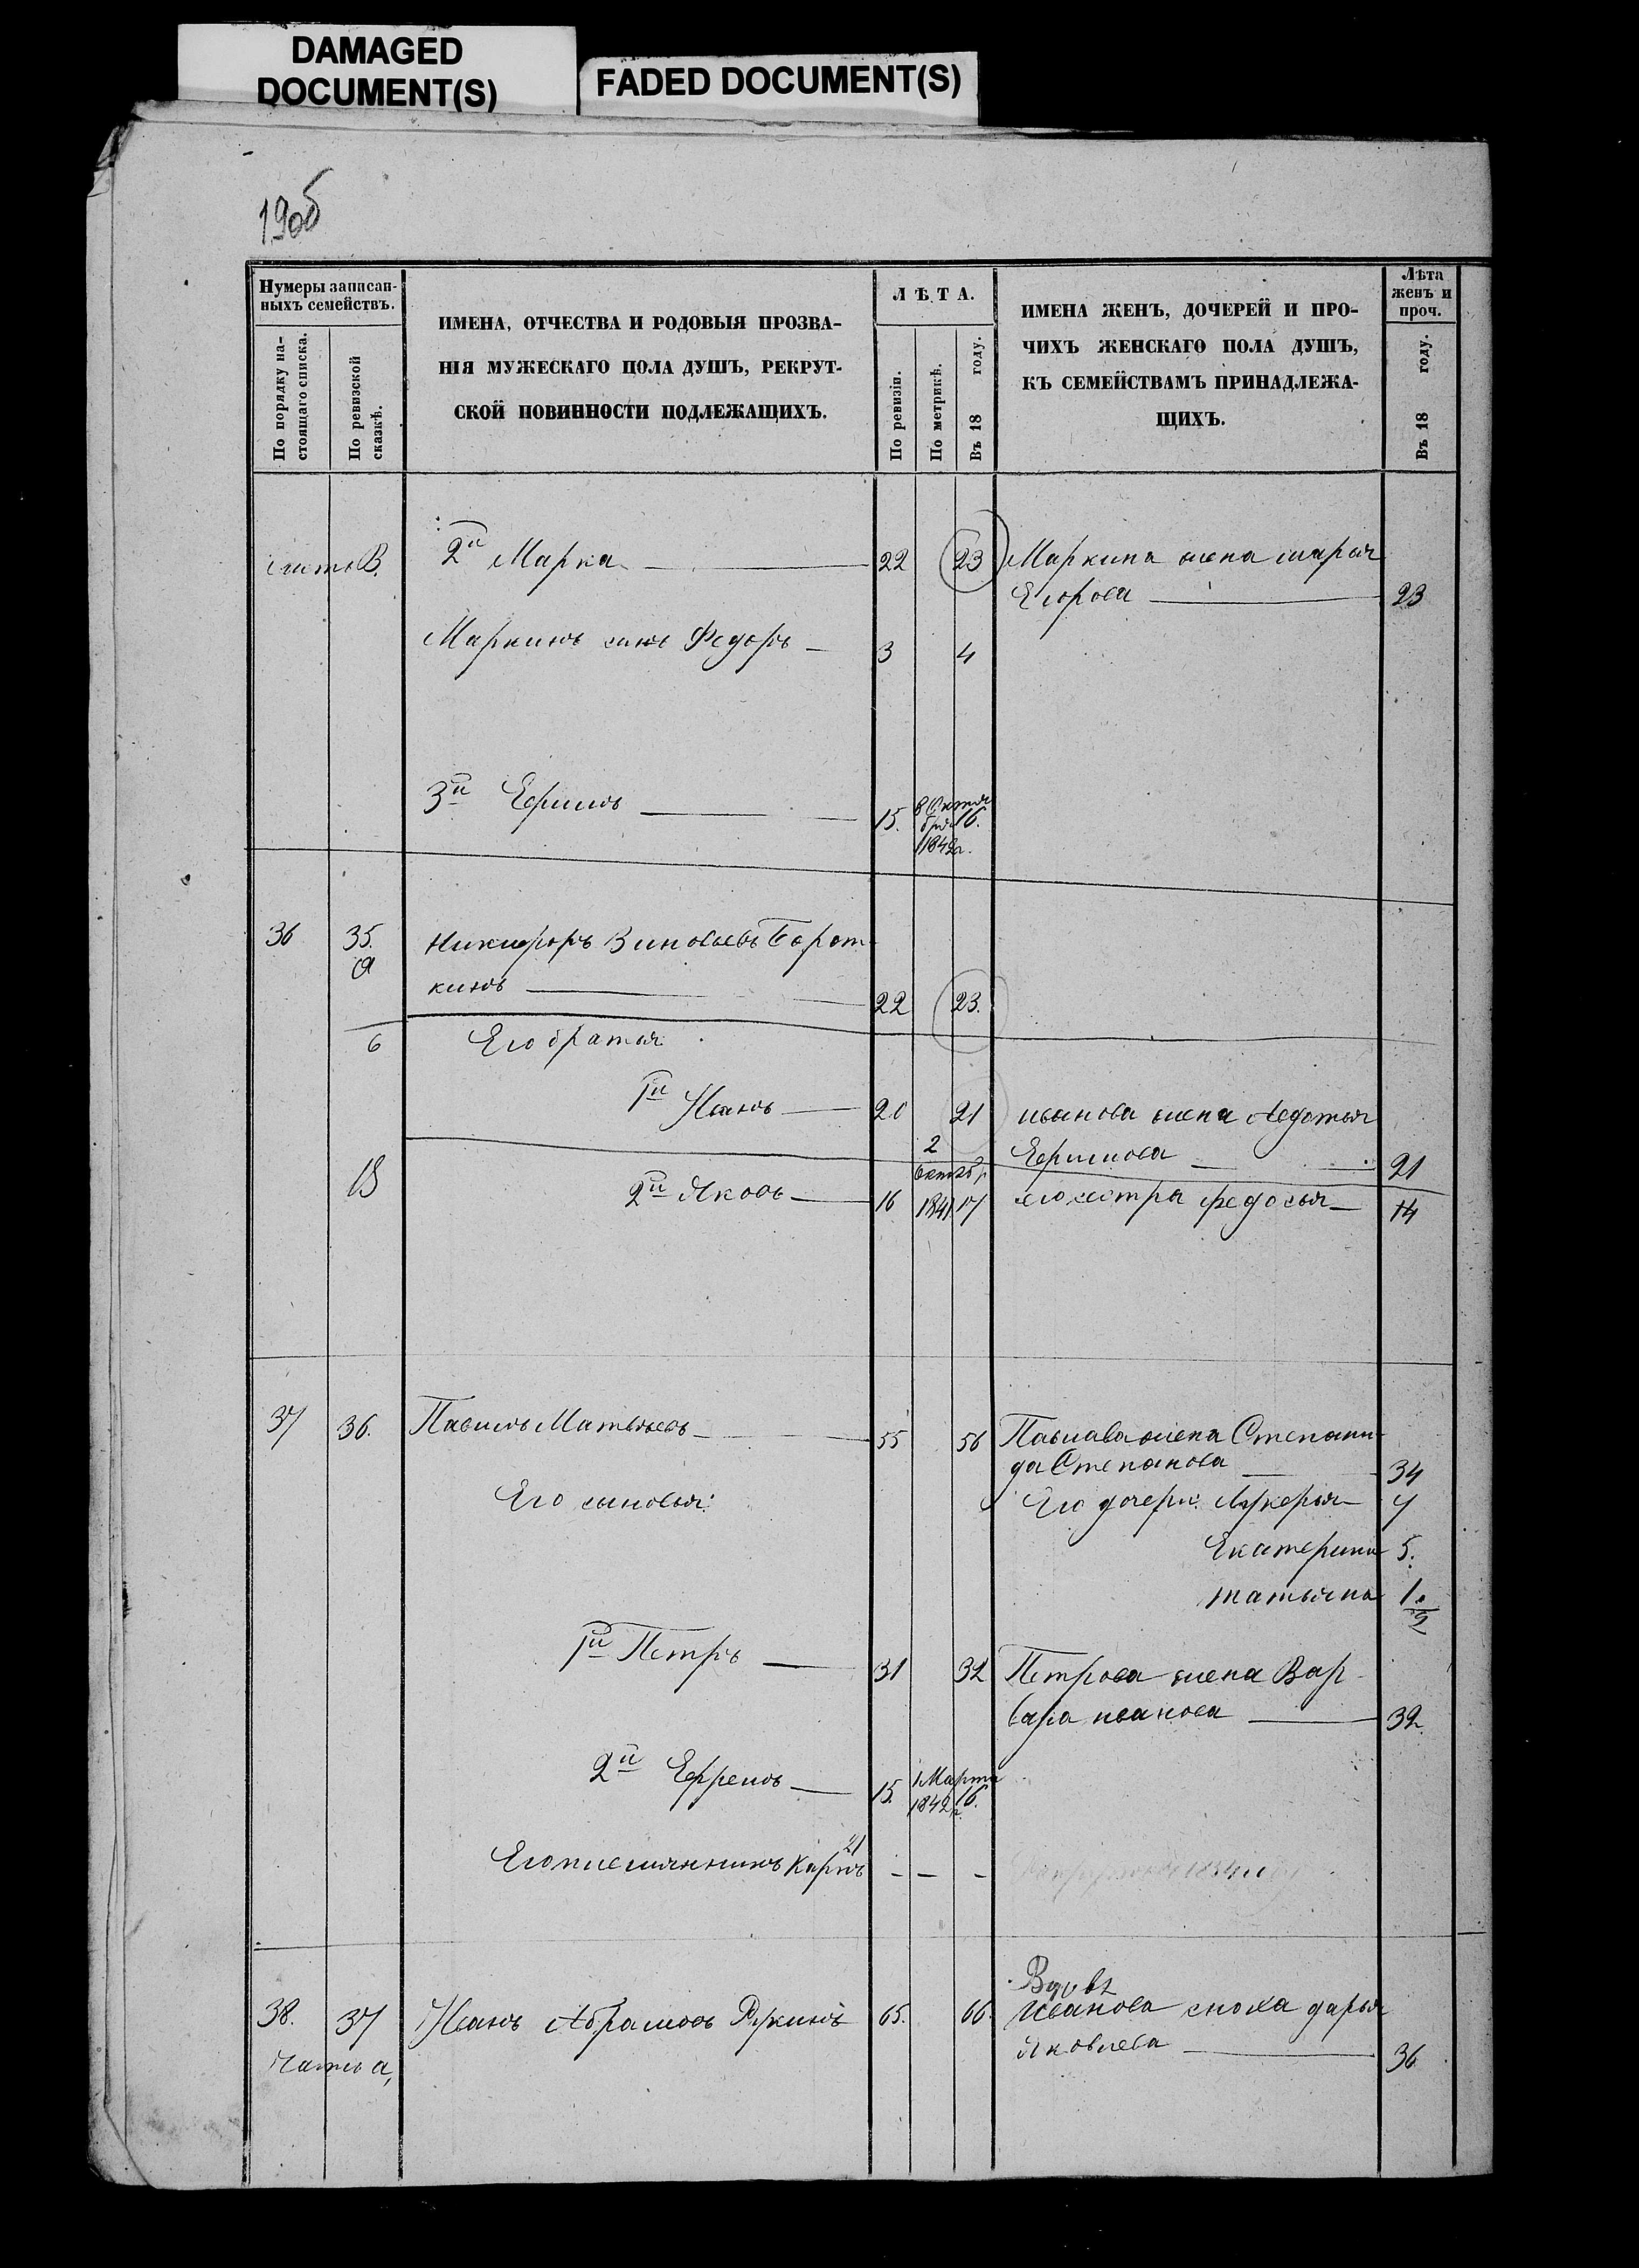 DAMAGED
DOCUMENT(S)
FADED DOCUMENT(S)
Нумеры записан-
ныхъ семействъ.
По порядку на-
стоящаго списка.
По ревизской
сказкѣ.
ИМЕНА, ОТЧЕСТВА И РОДОВЫЯ ПРОЗВА-
НІЯ МУЖЕСКАГО ПОЛА ДУШЪ, РЕКРУТ-
СКОЙ ПОВИННОСТИ ПОДЛЕЖАЩИХЪ.
ЛѢТА.
По ревизіи.
По метрикѣ.
Въ 18 году.
ИМЕНА ЖЕНЪ, ДОЧЕРЕЙ И ПРО-
ЧИХЪ ЖЕНСКАГО ПОЛА ДУШЪ,
КЪ СЕМЕЙСТВАМЪ ПРИНАДЛЕЖА-
ЩИХЪ.
Лѣта
женъ и
проч.
Въ 18 году.
В. 2й Марка 22 23 Маркина жена марья
Егорова 23
Маркинъ сынъ Федоръ 3 4
3й Ефимъ 15. 8 Октя
бря 16.
1842г.
36 35. Никифоръ Зиновьевъ Борот-
а
кинъ 22 23.
б Его братья
1й Иванъ 20 21 иванова жена Авдотья
2
Ефимова 21
Октябр
В 2й Яковъ 16 1841 17 его сестра федосья 14
37 36. Павилъ Матвѣевъ 55 56 Павлава жена Степани-
да Степанова 34
Его сыновья: Его дочери: Лукерья 7
Екатерина 5.
татьяна 1
1й Петръ 31 32 Петрова жена Вар-
вара иванова 32.
2й Ефремъ 15. 1 Марта
1842 г. 16.
21
Его племянникъ Карпъ
Вдова
38. 37 Иванъ Абрамовъ 65. 66. Иванова сноха дарья
Яковлева 36
часть а,